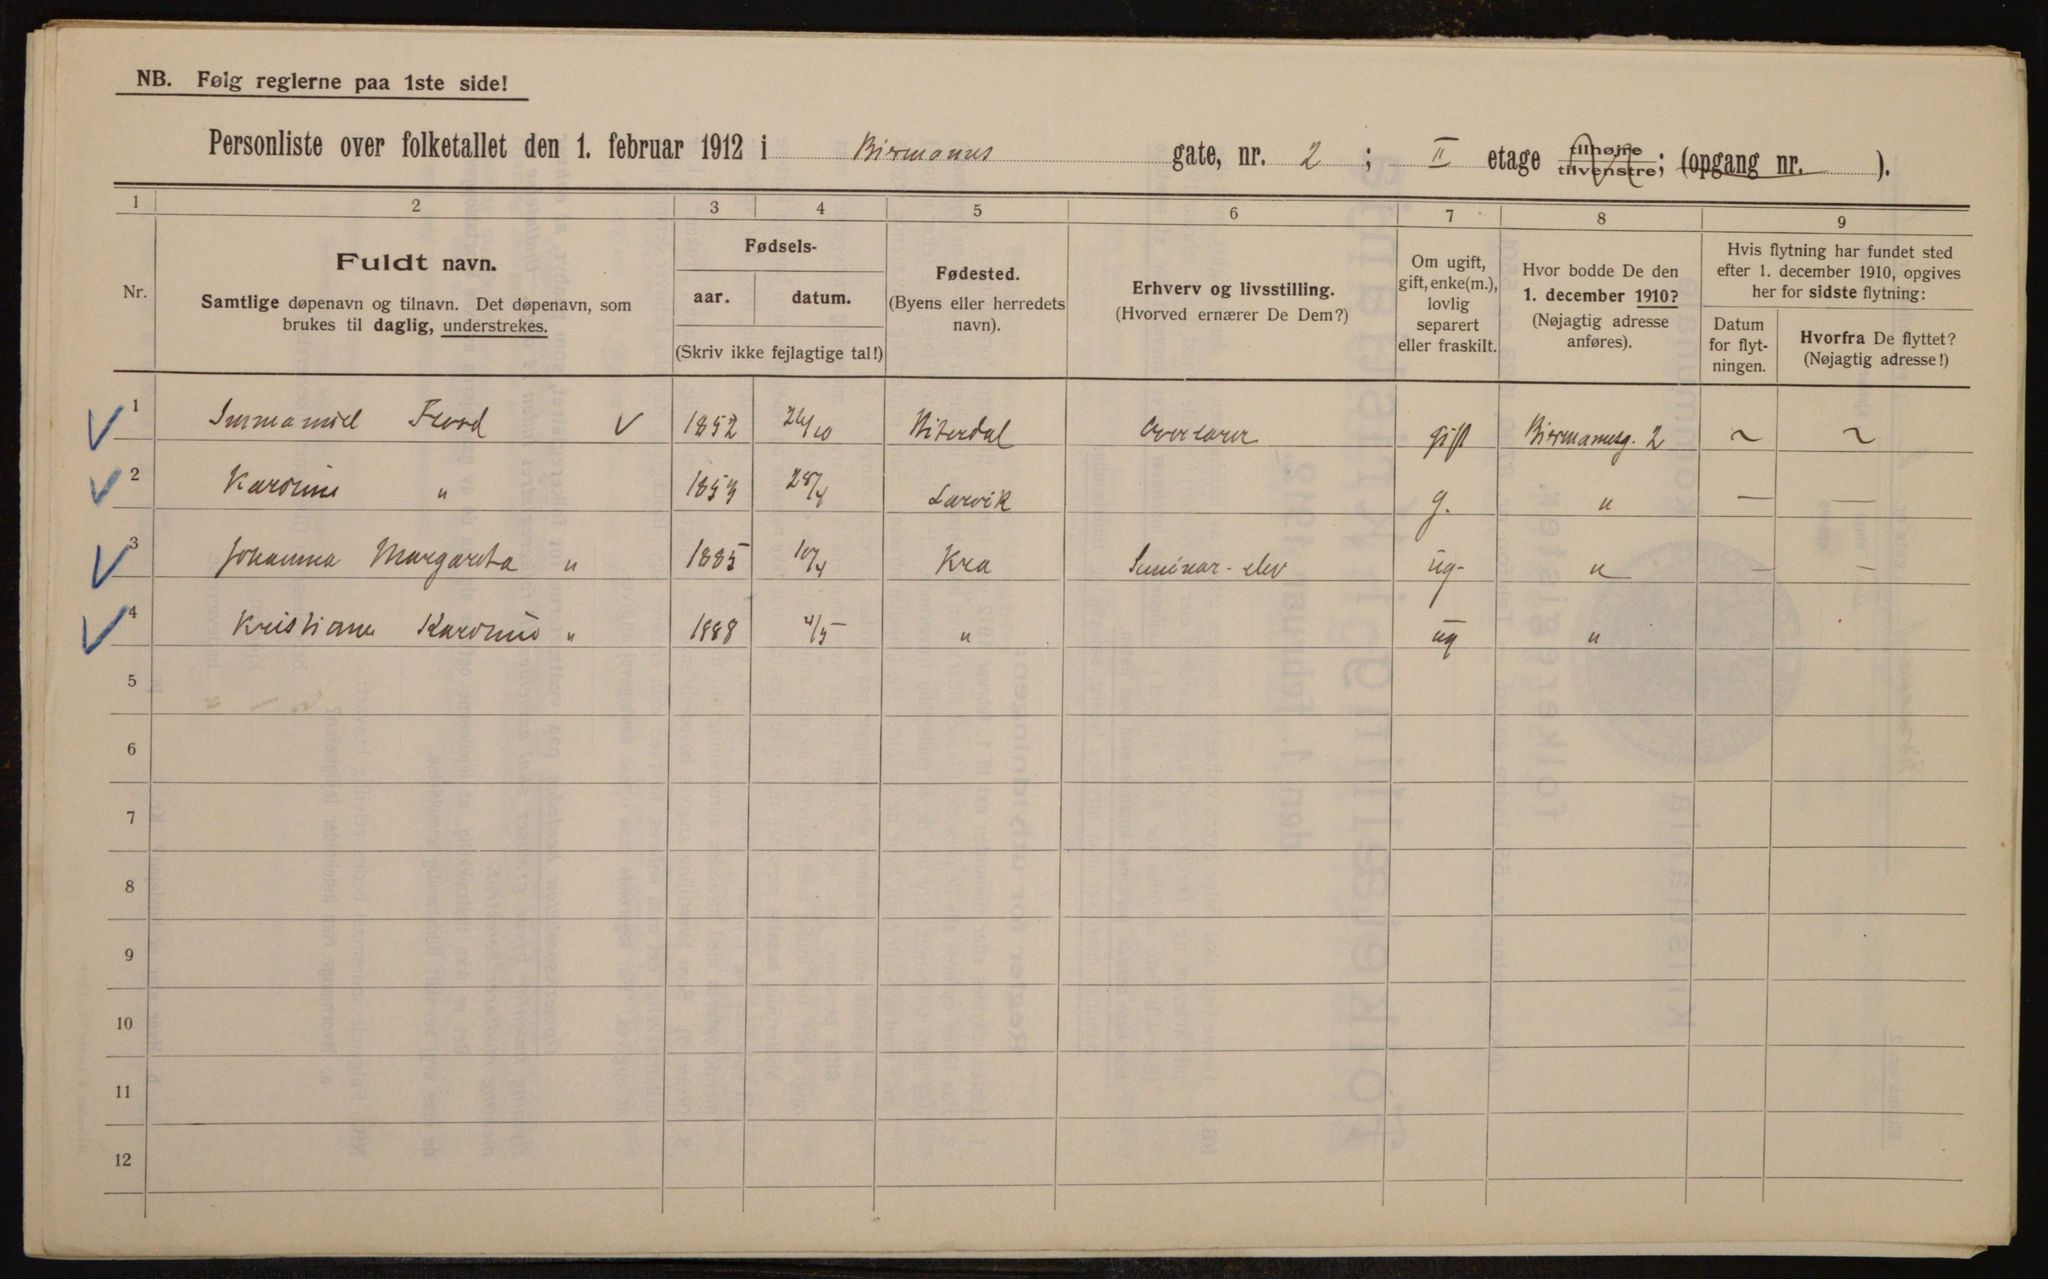 NB. Følg reglerne paa 1ste side!
Personliste over folketallet den 1. februar 1912 i Biermanns gate, nr. 2; II etage tilhøire tilvenstre; (opgang nr. ).
1 2 3 4 5 6 7 8 9
Nr.
Fuldt navn.
Samtlige døpenavn og tilnavn. Det døpenavn, som
brukes til daglig, understrekes.
Fødsels-
aar. datum.
(Skriv ikke fejlagtige tal!)
Fødested.
(Byens eller herredets
navn).
Erhverv og livsstilling.
(Hvorved ernærer De Dem?)
Om ugift,
gift, enke(m.),
lovlig
separert
eller fraskilt.
Hvor bodde De den
1. december 1910?
(Nøjagtig adresse
anføres).
Hvis flytning har fundet sted
efter 1. december 1910, opgives
her for sidste flytning:
Datum
for flyt-
ningen.
Hvorfra De flyttet?
(Nøjagtig adresse!)
1 Immanuel 1852 26/10 Hiterdal Overlærer gift Biermannsg. 2 ~ ~
2 Karoline " 1853 28/8 Larvik g. " — —
3 Johanna Margareta " 1885 10/4 Kra Seminar-elev ug- " — —
4 Kristiane Karoline " 1888 /5 " ug "
5
6
7
8
9
10
11
12